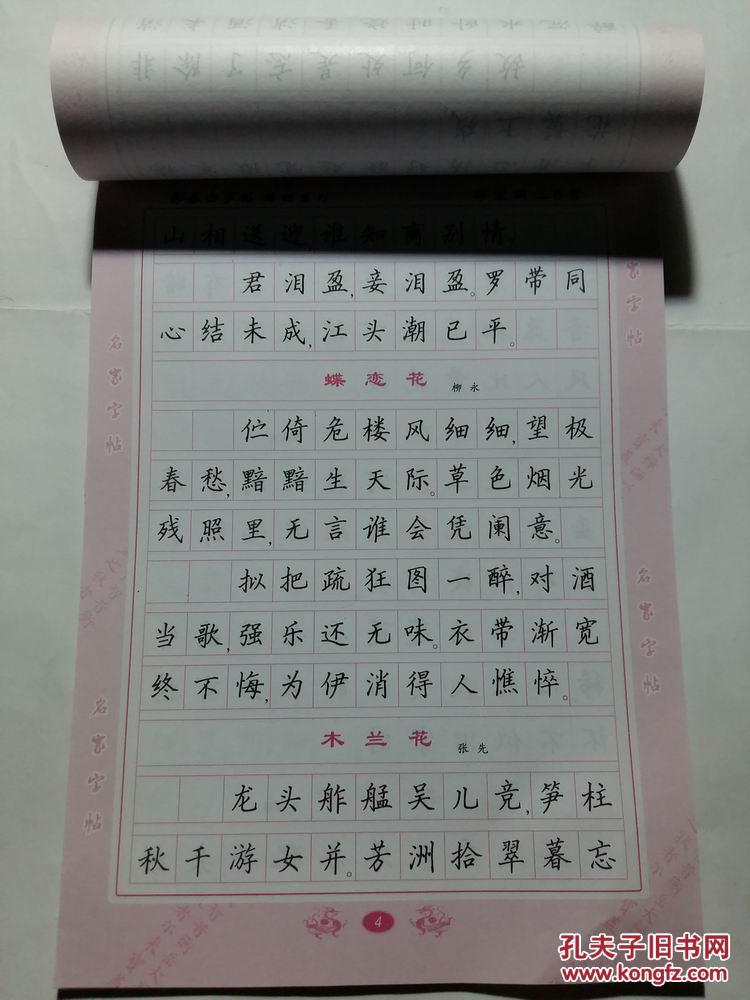 山相送迎,谁知离别情。
君泪盈,妾泪盈。罗带同
心结未成,江头潮已平。
蝶恋花 柳永
伫倚危楼风细细,望极
春愁,黯黯生天际。草色烟光
残照里,无言谁会凭阑意。
拟把疏狂图一醉,对酒
当歌,强乐还无味。衣带渐宽
终不悔,为伊消得人憔悴。
木兰花 张先
龙头舴艋吴儿竞,笋柱
秋千游女并。芳洲拾翠暮忘
4
名家字帖
名家字帖
名家字帖
名家字帖
孔夫子旧书网
www.kongfz.com